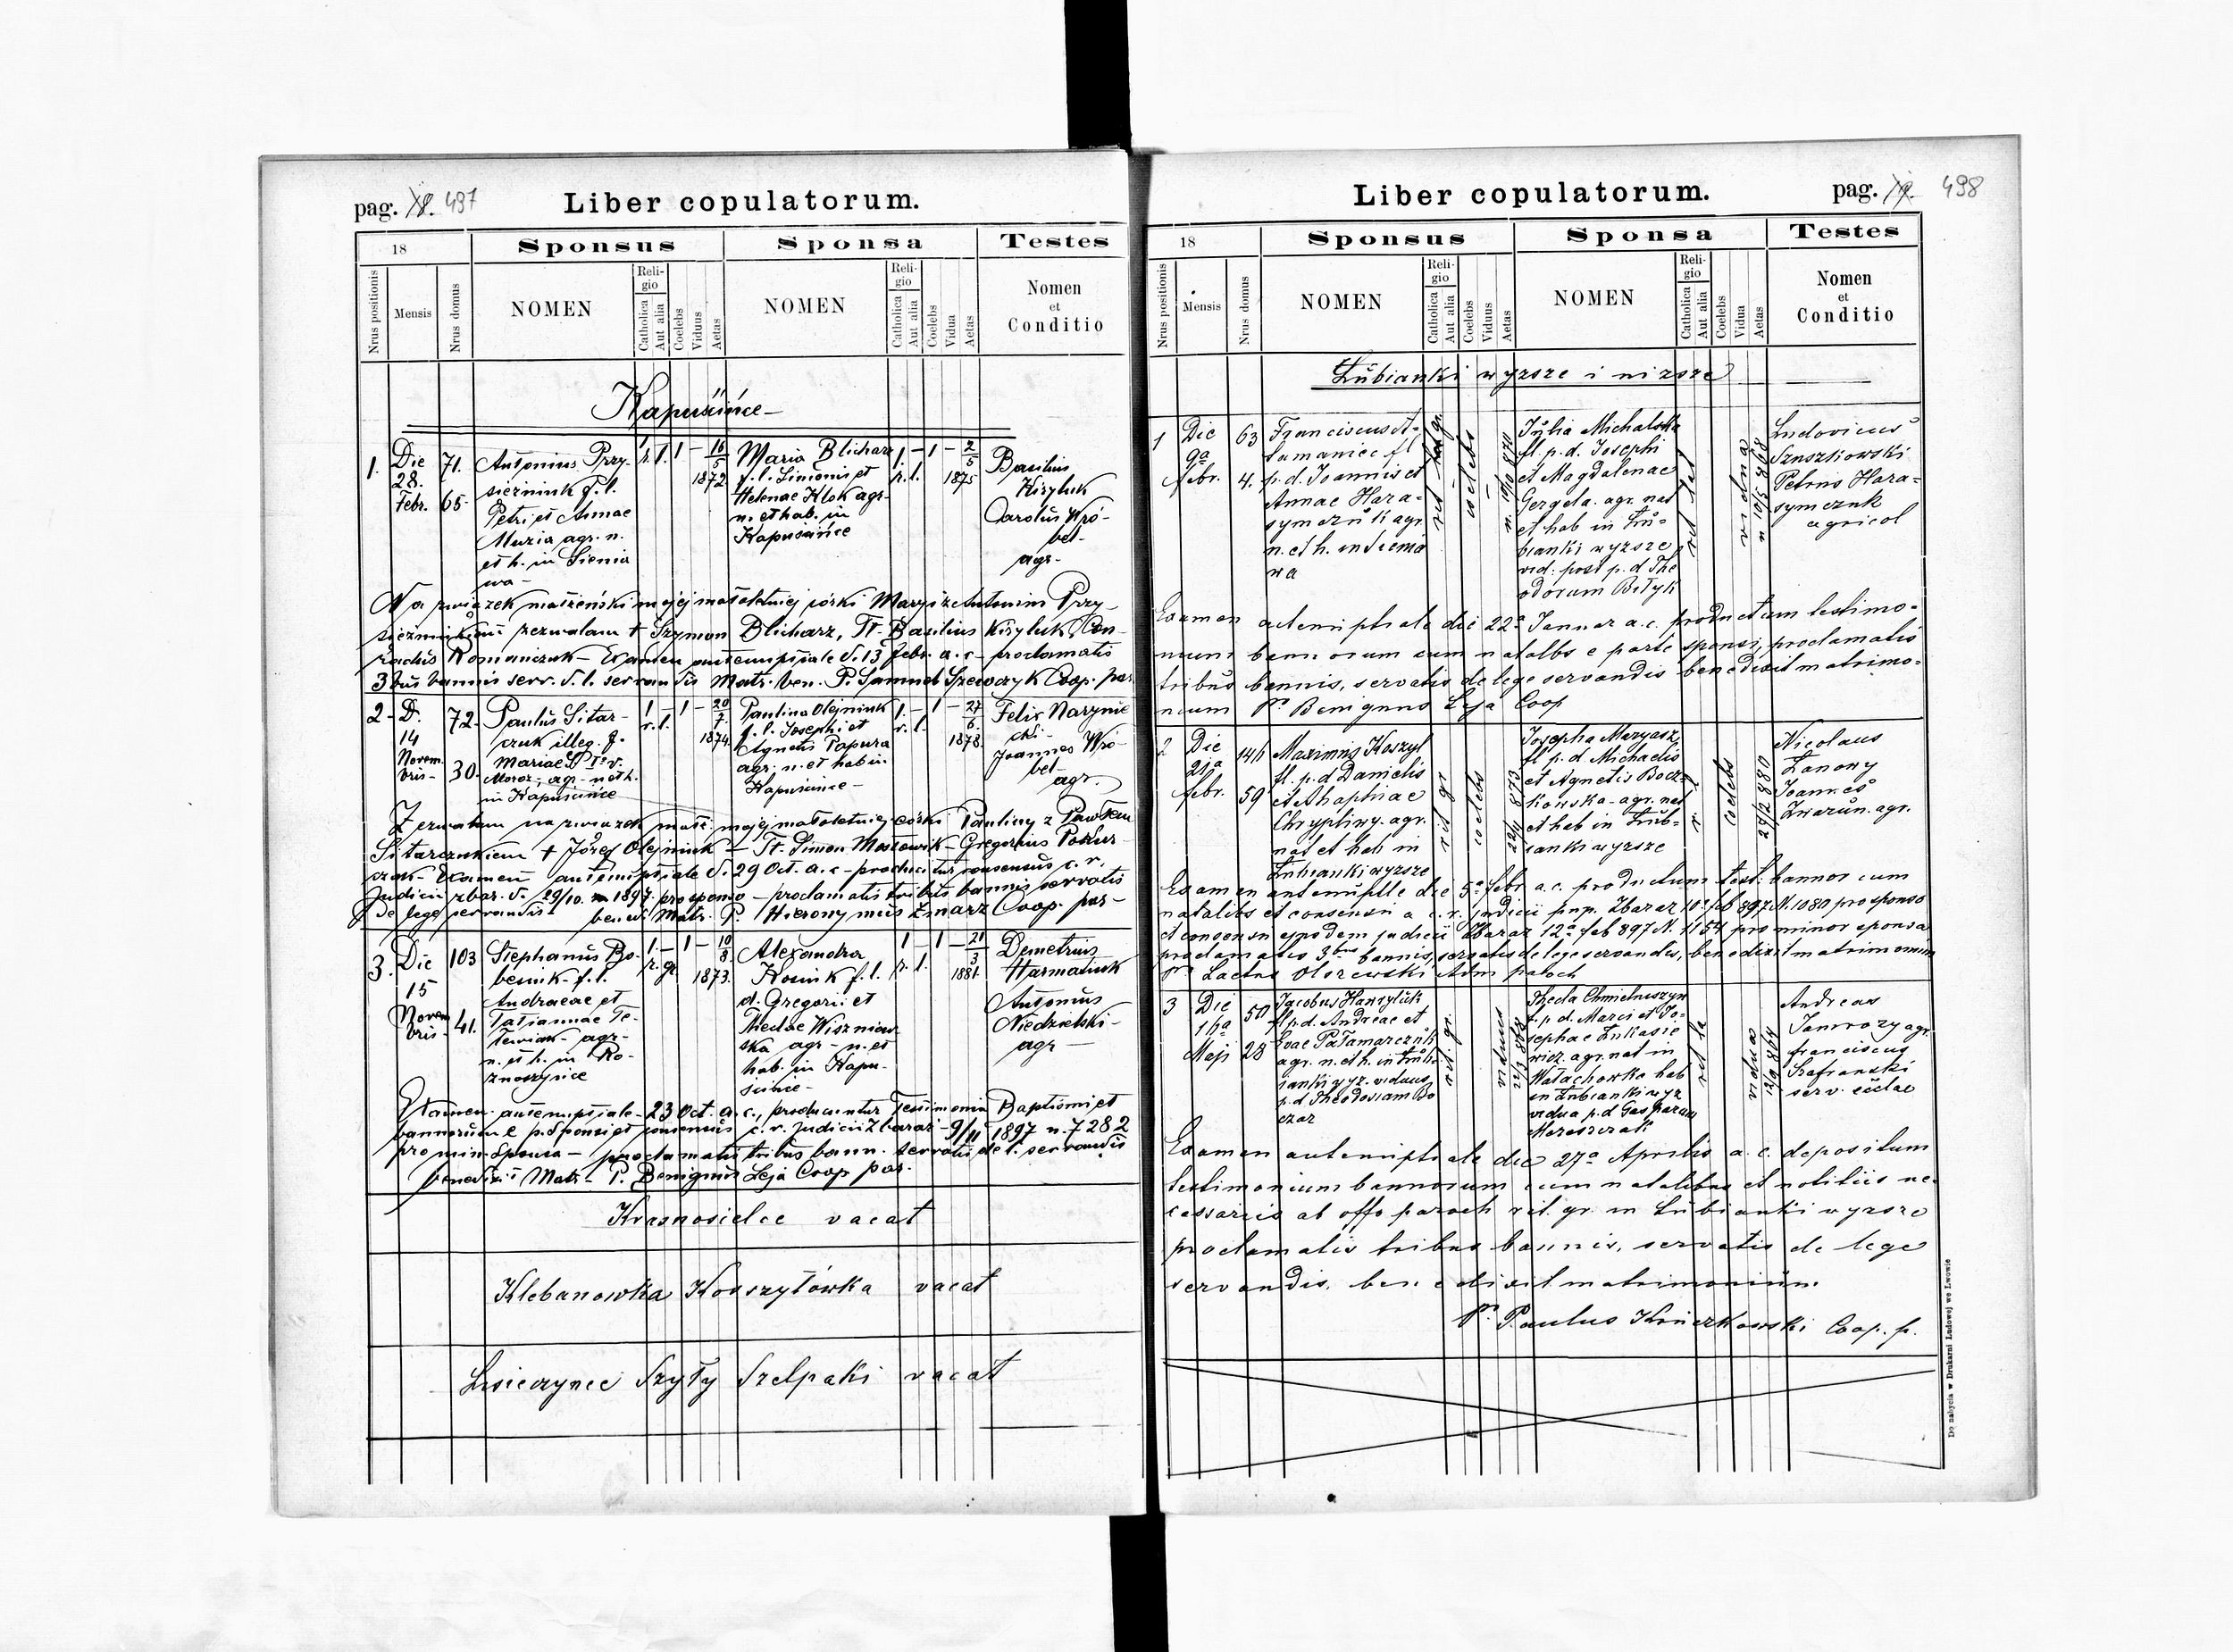 pag. 18. 497
Liber copulatorum.
18
Sponsus
Sponsa
Testes
Nrus positionis
Mensis
Nrus domus
NOMEN
Religio
Catholica
Aut alia
Coelebs
Viduus
Aetas
NOMEN
Religio
Catholica
Aut alia
Coelebs
Vidua
Aetas
Nomen
et
Conditio
Kapuścińce
1. Die 28. Febr.
71.
65.
Antonius Przy-
sieżniuk f. l.
Petri et Annae
Muzia agr. n.
et h. in Sienia
wa
1 r. l. 1 - 16/5 1872
Maria Blicharz
f. l. Simonis et
Helenae Klok agr.
n. et hab. in
Kapuścińce
1. r. l. - 1 - 2/5 1875
Basilius
Kiryluk
Carolus Wró-
bel
agr.
Na związek małżeński mojej małoletniej córki Maryi z Antonim Przy-
sieżniukiem zezwalam + Szymon Blicharz, Tt. Basilius Kiryluk, Con-
radus Romańczuk - Examen antenuptiale d. 13 Febr. a. c. - proclamatis
3bus bannis serv. d. l. servandis Matr. ben. P. Samuel Szewczyk Coop. par.
2. D. 14 Novem
bris
72.
30.
Paulus Sitar-
czuk illeg. f.
Mariae
Moroz, agr. n. et h.
in Kapuścińce
1 - r. l. 1 - 20/7. 1874.
Paulina Olejniuk
f. l. Josephi et
Agnetis Papura
agr. n. et hab. in
Kapuścińce
1. r. l. - 1 - 27/6. 1878.
Felix Narynie
cki
Joannes Wró-
bel
agr.
Zezwalam na związek małż. mojej małoletniej córki Pauliny z Pawłem
Sitarczukiem + Józef Olejniuk - Tt. Simon Mostowik - Gregorius
Examen antenuptiale d. 29 Oct. a. c. - producitur consensus c. r.
Judicii zbar. d. 29/10. 1897. pro sponso - proclamatis tribus bannis servatis
de lege servandis ben. Matr. P. Hieronymus Zmarz Coop. par.
3. Die 15 Novem
bris
103
41.
Stephanus Bo-
besiuk f. l.
Andraeae et
Tatiannae Te-
agr.
n. et h. in Ro-
znoszyńce
1. - r. gr. 1 - 10/8. 1873.
Alexandra
Kosiuk f. l.
d. Gregorii et
Theclae Wiszniow
ska agr. n. et
hab. in Kapu-
ścińce
1 r. l. - 1 - 21/3 1881.
Demetrius
Harmatiuk
Antonius
Niedzielski
agr
Examen antenuptiale 23 Oct. a. c., producuntur Testimonia Baptismi et
bannorum e p. Sponsi et consensus c. r. Judicii Zbaraż - 9/11 1897 n. 7282
pro min. Sponsa - proclamatis tribus bann. servatis de l. servandis
benedixit Matr. - P. Benignus Leja Coop par.
Krasnosielce vacat
Klebanowka Koszytówka vacat
Lisieczynce Szyły Szelpaki vacat
Liber copulatorum.
pag. 19. 498
18
Sponsus
Sponsa
Testes
Nrus positionis
Mensis
Nrus domus
NOMEN
Religio
Catholica
Aut alia
Coelebs
Viduus
Aetas
NOMEN
Religio
Catholica
Aut alia
Coelebs
Vidua
Aetas
Nomen
et
Conditio
Łubianki wyzsze i nizsze
1 Die 9a febr.
63
4.
Franciscus A-
tamaniec fl
p. d. Joannis et
Annae Hara-
symczuk agr
n. et h. in Sienia
wa
rit gr.
coelebs
n. 10/10 870
Julia Michalska
fl. p. d. Josephi
et Magdalenae
Gergela. agr. nat
et hab in Łu-
bianki wyzsze
vid. post p. d The
odorum Bołyk
vidua
Ludovicus
Sznszkowski
Petrus Hara-
symczuk
agricol
Examen antenuptiale die 22a Januar a. c. productum testimo-
nium bannorum cum natalbs e parte sponsi, proclamatis
tribus bannis, servatis de lege servandis benedixit matrimo-
nium Pr Benignus Leja Coop
2 Die 21a febr.
144
59
Maximus Koszyl
fl. p. d Danielis
et Ahaphiae
Chrypliwy. agr.
nat et hab in
Łubianki wyzsze
rit gr
coelebs
22/1 873
Josepha Maryasz
fl p. d. Michaelis
et Agnetis Bocz-
kowska - agr. nat
et hab in Łub-
ianki wyzsze
coelebs
26/2 880
Nicolaus
Zanowy
Joannes
Zwarun. agr.
Examen antenuptle die 5a febr a. c. productum test. bannor cum
natalibs et consensu a c. r. judicii pup. Zbaraz 10a feb 897 N. 1080 pro sponso
et consensu ejusdem judicii Zbaraz 12a feb 897 N. 1154 pro minor sponsa
proclamatis 3bus bannis, servatis de lege servandis, benedixit matrimonium
Pr Laetus Olszewski Adm paroch
3 Die 1ma Maji
50
28
Jacobus Hawryluk
fl p. d. Andreae et
Evae Pałamarczuk
agr. n. et h. in Łub
ianki wyz. viduus
p. d Theodosiam Bo
czar
rit gr.
viduus
Thecla Chmielnuszyn
f. p d. Marci et Jo-
sephae Łukasie
wicz. agr. nat in
Wałachowka hab
in Łubianki wyz
vidua p. d Gasparum
Maraszczak
vidua
Andreas
Jawrozy agr
franciscus
Szafranski
serv. eccles
Examen antenuptiale die 27a Aprilis a. c. depositum
testimonium bannorum cum natalibus et notitiis ne-
cessariis ab offo paroch rit. gr. in Łubianki wyzsze
proclamatis tribus bannis, servatis de lege
servandis. benedixit matrimonium.
Pr Paulus Kruczkowski Coop. p.
Do nabycia w Drukarni Ludowej we Lwowie